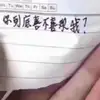 你到底喜不喜欢我?